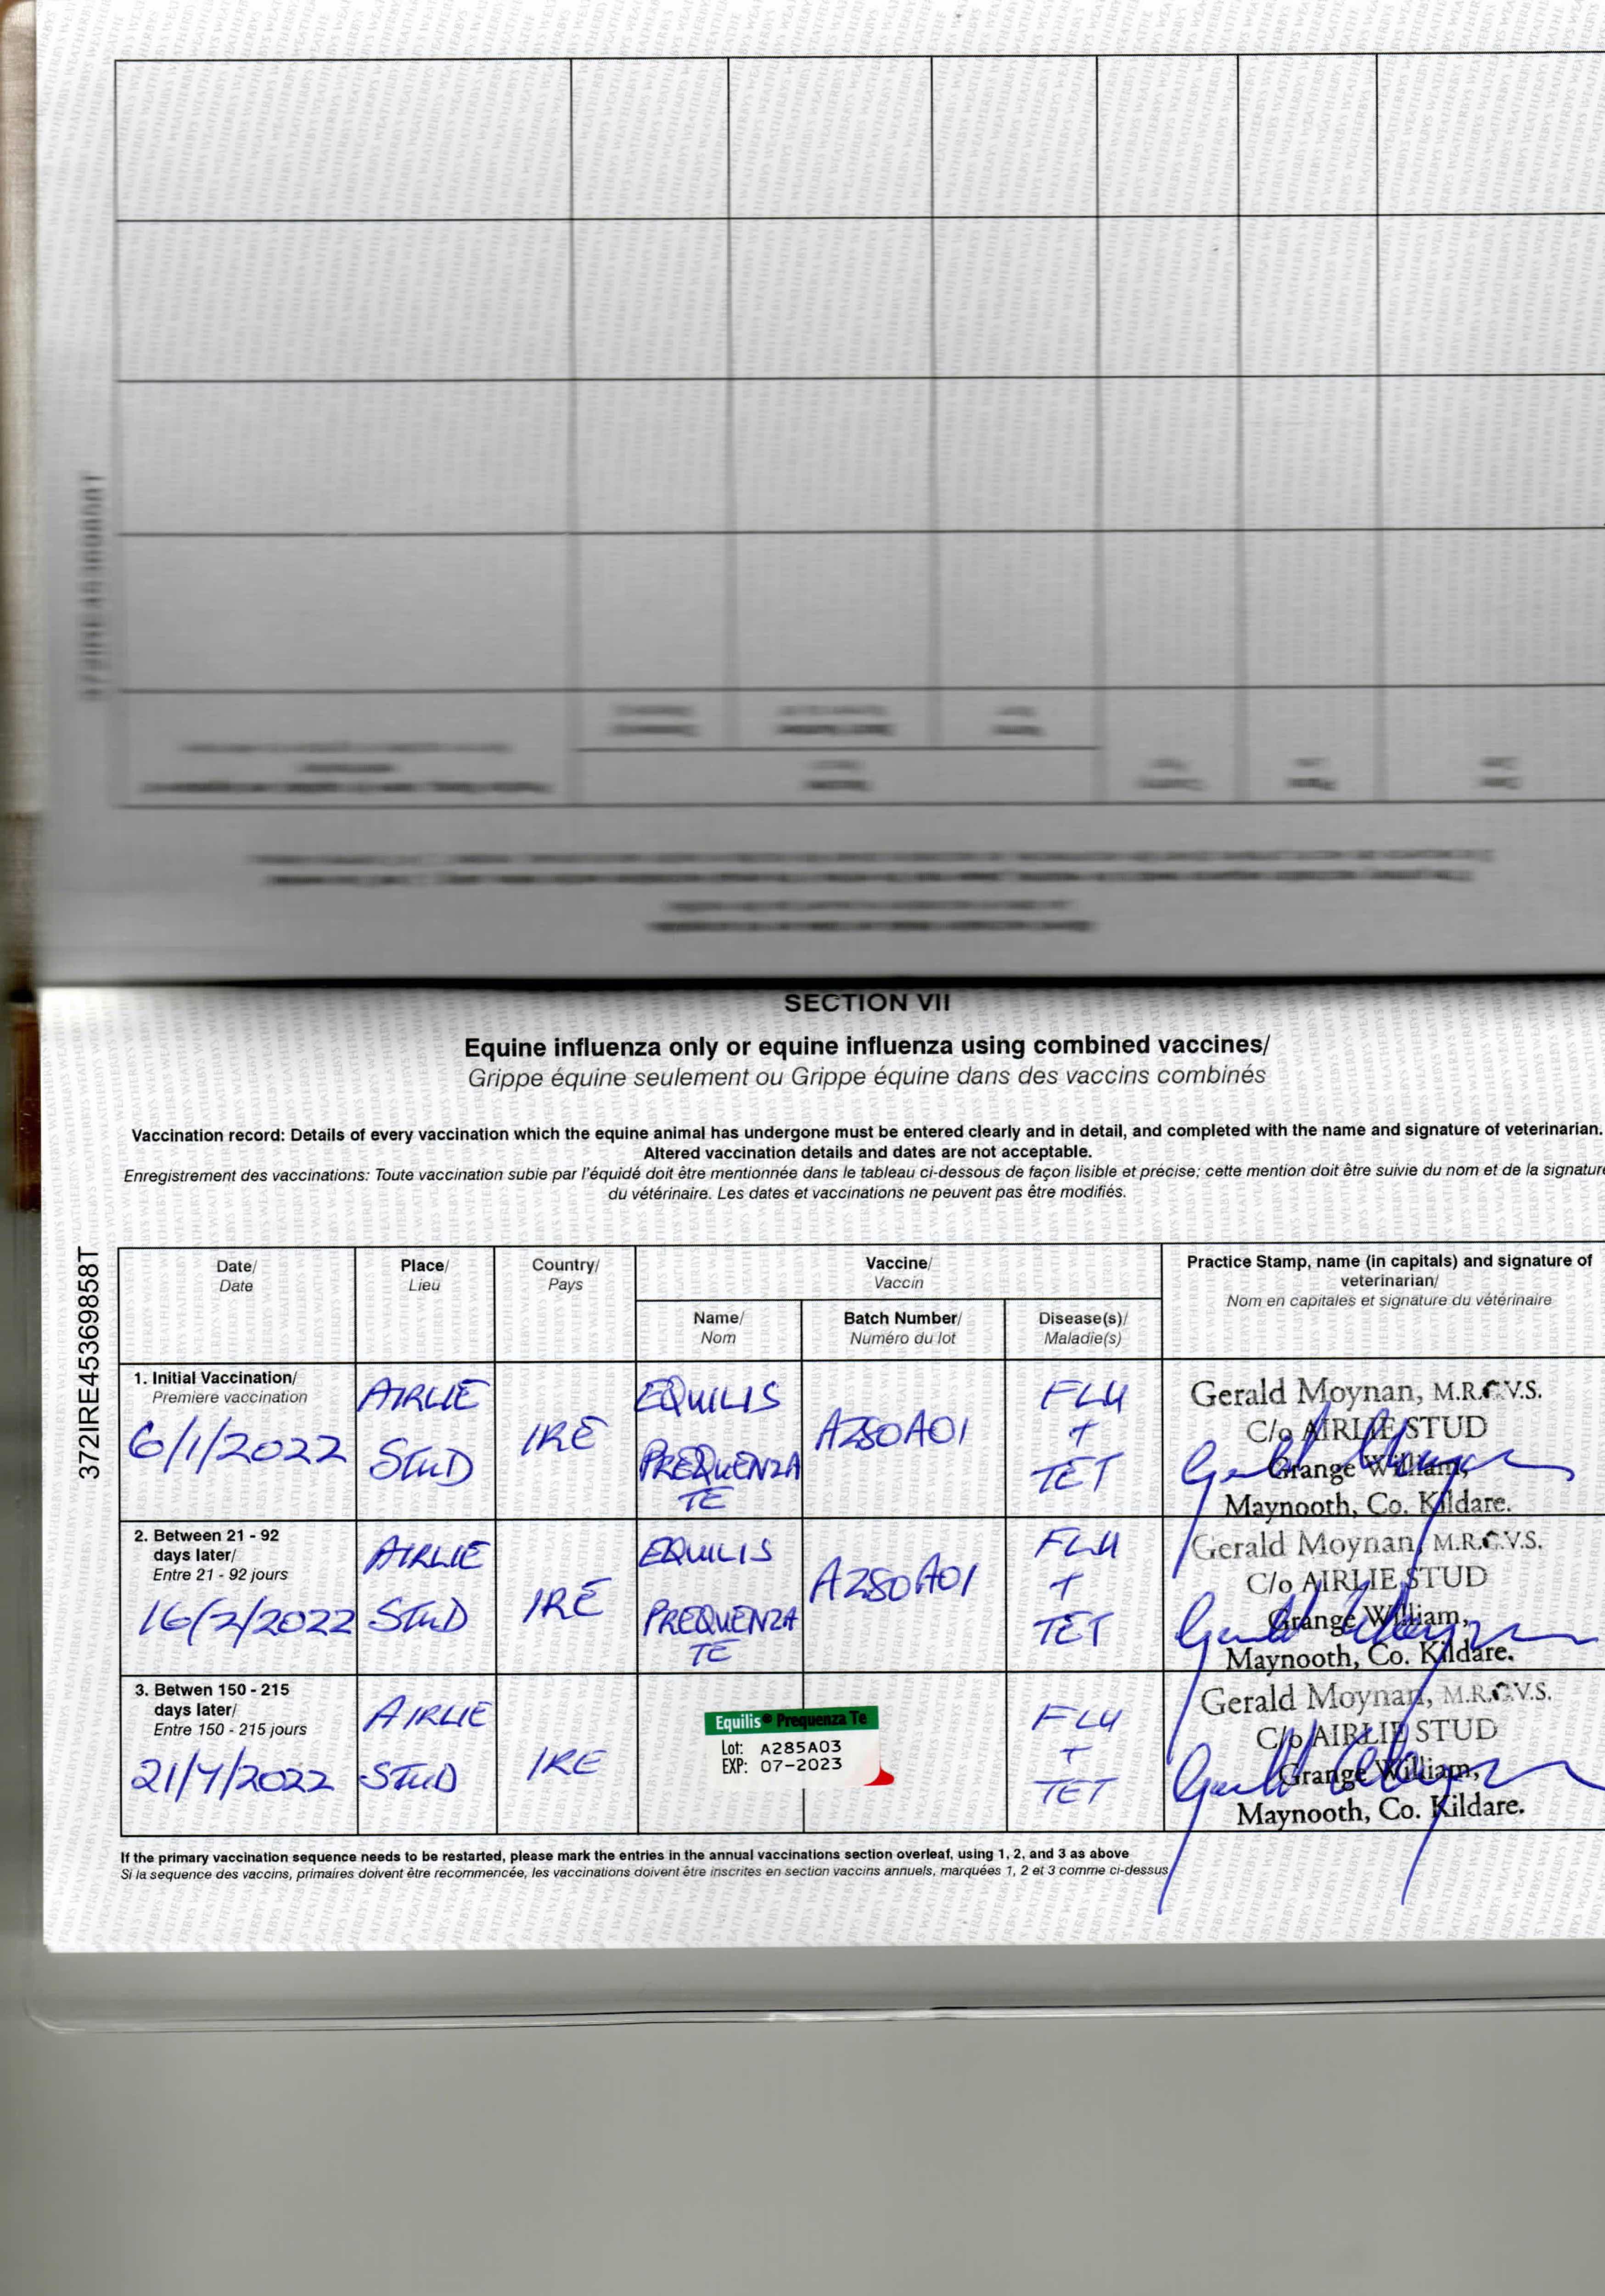 SECTION VII
Equine influenza only or equine influenza using combined vaccines/
Grippe équine seulement ou Grippe équine dans des vaccins combinés
Vaccination record: Details of every vaccination which the equine animal has undergone must be entered clearly and in detail, and completed with the name and signature of veterinarian.
Altered vaccination details and dates are not acceptable.
Enregistrement des vaccinations: Toute vaccination subie par l'équidé doit être mentionnée dans le tableau ci-dessous de façon lisible et précise; cette mention doit être suivie du nom et de la signature
du vétérinaire. Les dates et vaccinations ne peuvent pas être modifiés.
372IRE45369858T
Date/
Date
Place/
Lieu
Country/
Pays
Vaccine/
Vaccin
Name/
Nom
Batch Number/
Numéro du lot
Disease(s)/
Maladie(s)
Practice Stamp, name (in capitals) and signature of
veterinarian/
Nom en capitales et signature du vétérinaire
1. Initial Vaccination/
Premiere vaccination
6/1/2022
AIRLIE
STUD
IRE
EQUILIS
PREQUENZA
TE
A280A01
FLU
+
TET
Gerald Moynan, M.R.C.V.S.
C/o AIRLIE STUD
Grange William,
Maynooth, Co. Kildare.
2. Between 21 - 92
days later/
Entre 21 - 92 jours
16/2/2022
AIRLIE
STUD
IRE
EQUILIS
PREQUENZA
TE
A280A01
FLU
+
TET
Gerald Moynan, M.R.C.V.S.
C/o AIRLIE STUD
Grange William,
Maynooth, Co. Kildare.
3. Betwen 150 - 215
days later/
Entre 150 - 215 jours
21/7/2022
AIRLIE
STUD
IRE
Equilis® Prequenza Te
Lot: A285A03
EXP: 07-2023
FLU
+
TET
Gerald Moynan, M.R.C.V.S.
C/o AIRLIE STUD
Grange William,
Maynooth, Co. Kildare.
If the primary vaccination sequence needs to be restarted, please mark the entries in the annual vaccinations section overleaf, using 1, 2, and 3 as above
Si la sequence des vaccins, primaires doivent être recommencée, les vaccinations doivent être inscrites en section vaccins annuels, marquées 1, 2 et 3 comme ci-dessus